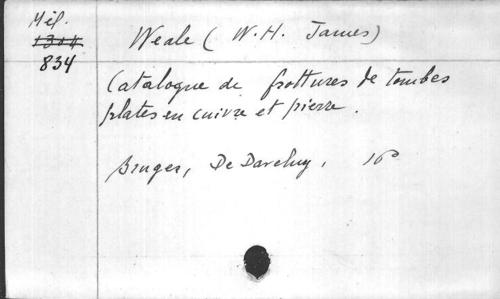 Mél.
1304
834
Weale (W. H. James)
Catalogue de frottures de tombes
plates en cuivre et pierre.
Bruges, De Darcluy, 16°